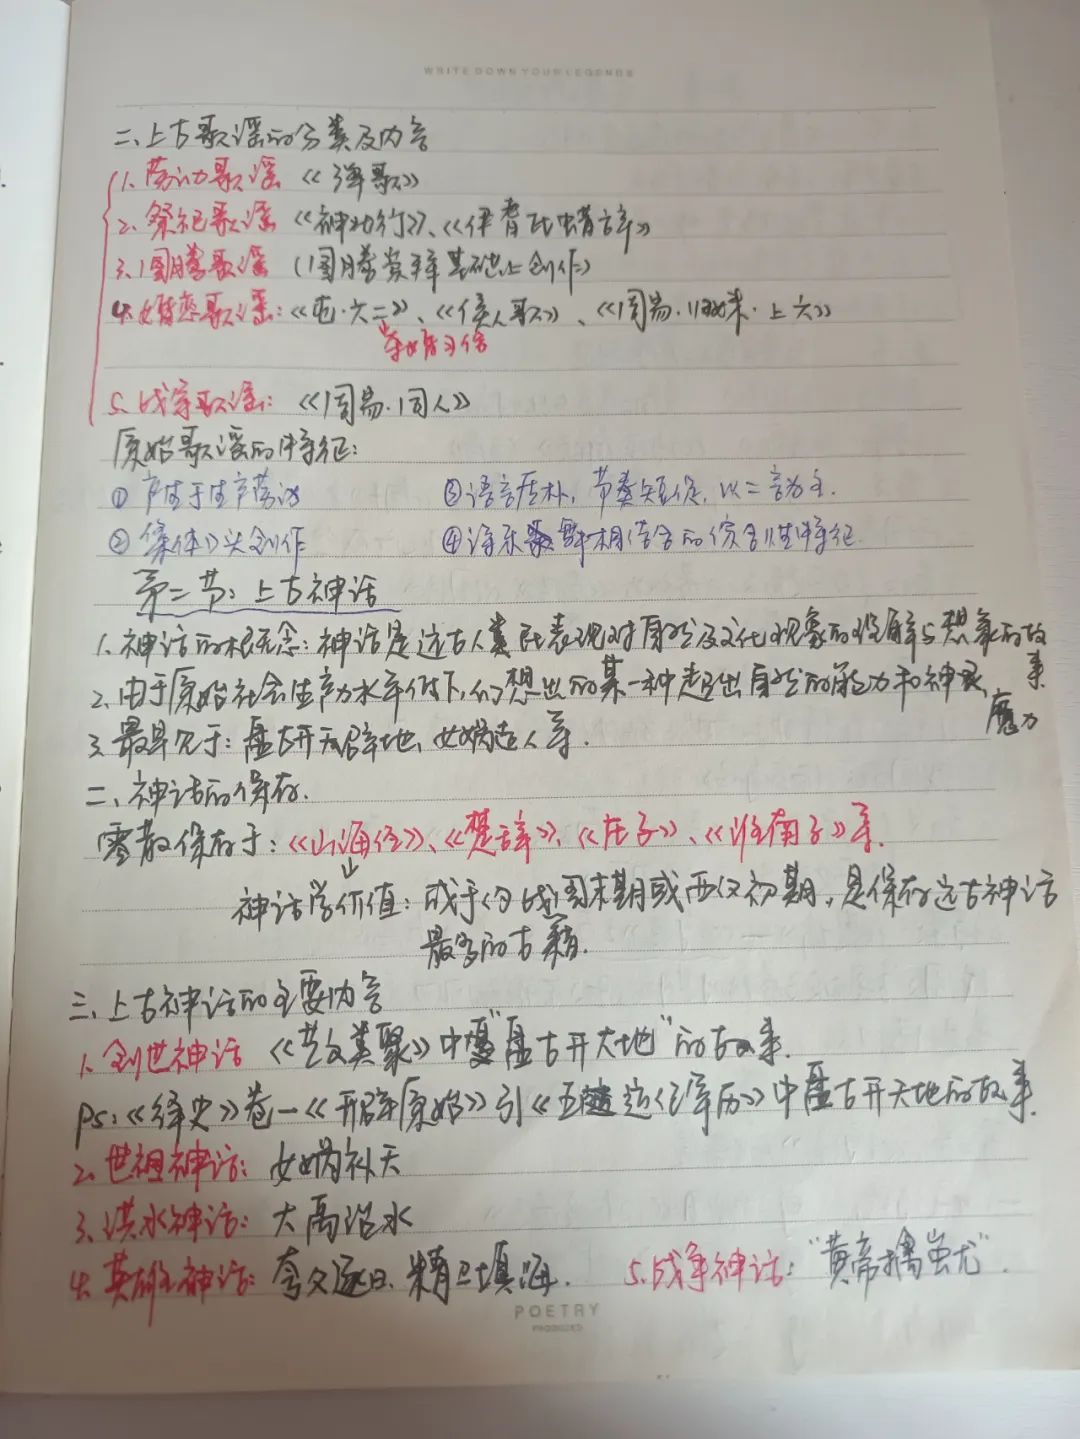 WRITE DOWN YOUR LEGENDS
二、上古歌谣的分类及内容
1. 劳动歌谣 《弹歌》
2. 祭祀歌谣 《神北行》、《伊耆氏蜡辞》
3. 图腾歌谣 (图腾崇拜基础上创作)
4. 婚恋歌谣:《屯·六二》、《侯人歌》、《周易·归妹·上六》
5. 战争歌谣: 《周易·同人》
原始歌谣的特征:
① 产生于生产劳动 ③ 语言质朴, 节奏短促, 以二言为主.
② 集体口头创作 ④ 诗乐舞相结合的综合性特征.
第二节: 上古神话
1. 神话的概念: 神话是远古人类表现对自然及文化现象的理解与想象的故事
2. 由于原始社会生产力水平低下, 们想出的某一种超出自然的能力和神灵
魔力
3. 最早见于: 盘古开天辟地、女娲造人等.
二、神话的保存.
零散保存于: 《山海经》、《楚辞》、《庄子》、《淮南子》等.
神话学价值: 成于战国末期或西汉初期, 是保存远古神话
最多的古籍.
三、上古神话的主要内容
1. 创世神话 《艺文类聚》中"盘古开天地"的故事.
PS:《绎史》卷一《开辟原始》引《五运历》中盘古开天地的故事.
2. 世祖神话: 女娲补天
3. 洪水神话: 大禹治水
4. 英雄神话: 夸父逐日、精卫填海. 5. 战争神话: "黄帝擒蚩尤".
POETRY
PRODUCED